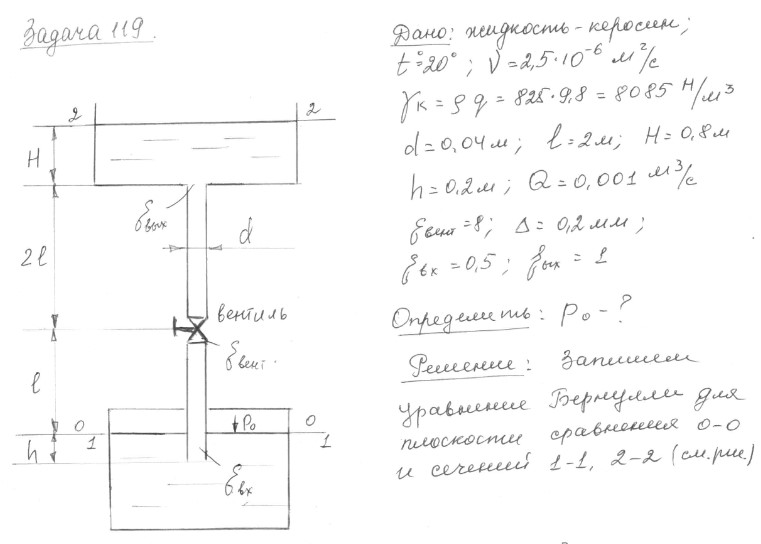 Задача 119.
2 2
H
ξвых
d
2l
вентиль
ξвент.
l
0 P₀ 0
1 1
h
ξвх
Дано: жидкость - керосин;
t°=20°; ν=2,5·10⁻⁶ м²/с
γк = ρg = 825·9,8 = 8085 Н/м³
d=0,04м; l=2м; H=0,8м
h=0,2м; Q=0,001 м³/с
ξвент=8; Δ=0,2мм;
ξвх=0,5; ξвых=1
Определить: P₀-?
Решение: Запишем
уравнение Бернулли для
плоскости сравнения 0-0
и сечений 1-1, 2-2 (см.рис.)